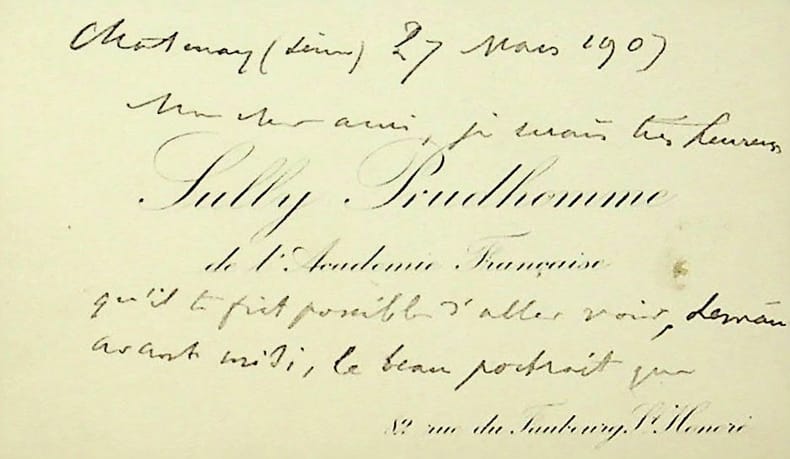 Chatenay (Seine) 27 Mars 1907
Mon cher ami, je serais très heureux
Sully Prudhomme
de l'Académie Française
qu'il te fût possible d'aller voir, demain
avant midi, le beau portrait que
82 rue du Faubourg St Honoré